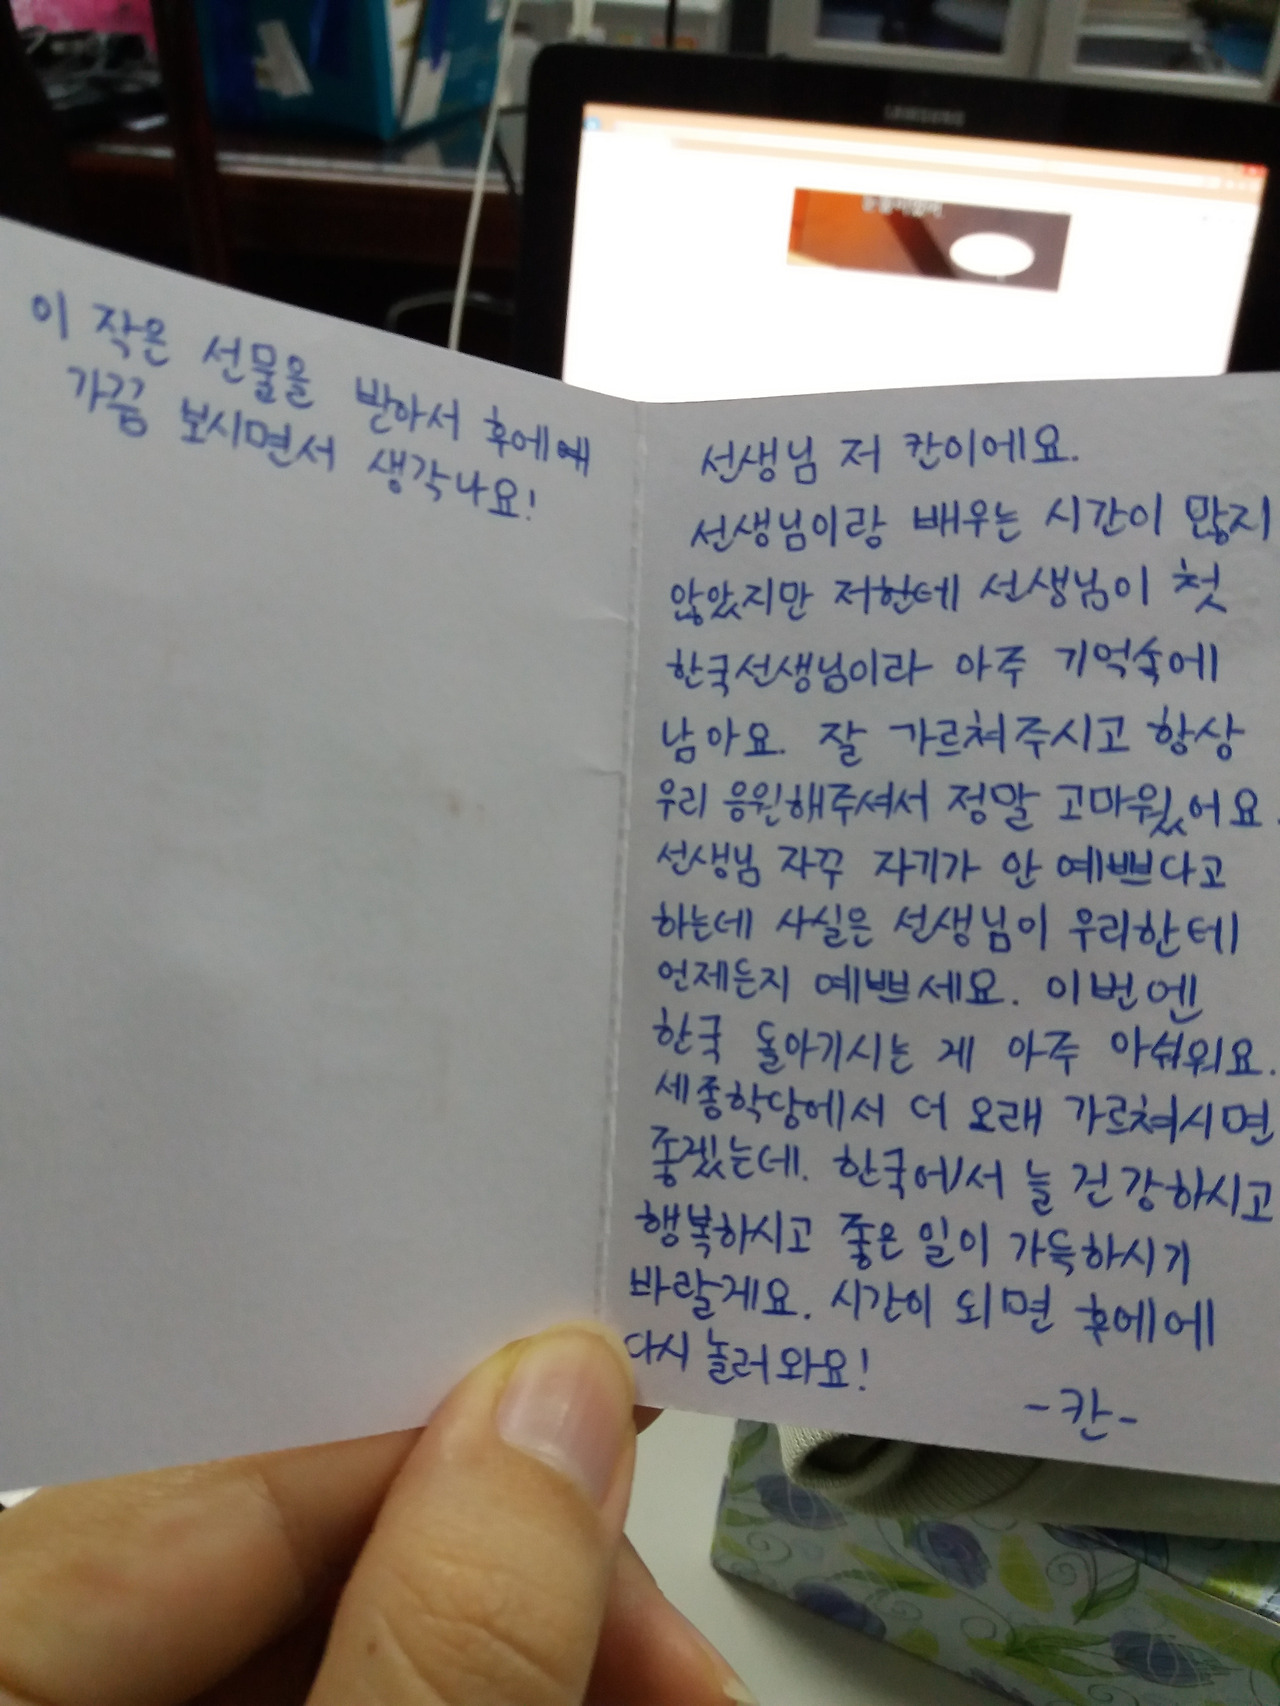 SAMSUNG
이 작은 선물을 받아서 후에에
가끔 보시면서 생각나요!
선생님 저 칸이에요.
선생님이랑 배우는 시간이 많지
않았지만 저한테 선생님이 첫
한국선생님이라 아주 기억속에
남아요. 잘 가르쳐주시고 항상
우리 응원해주셔서 정말 고마웠어요.
선생님 자꾸 자기가 안 예쁘다고
하는데 사실은 선생님이 우리한테
언제든지 예쁘세요. 이번엔
한국 돌아기시는 게 아주 아쉬워요.
세종학당에서 더 오래 가르쳐시면
좋겠는데. 한국에서 늘 건강하시고
행복하시고 좋은 일이 가득하시기
바랄게요. 시간이 되면 후에에
다시 놀러와요!
-칸-